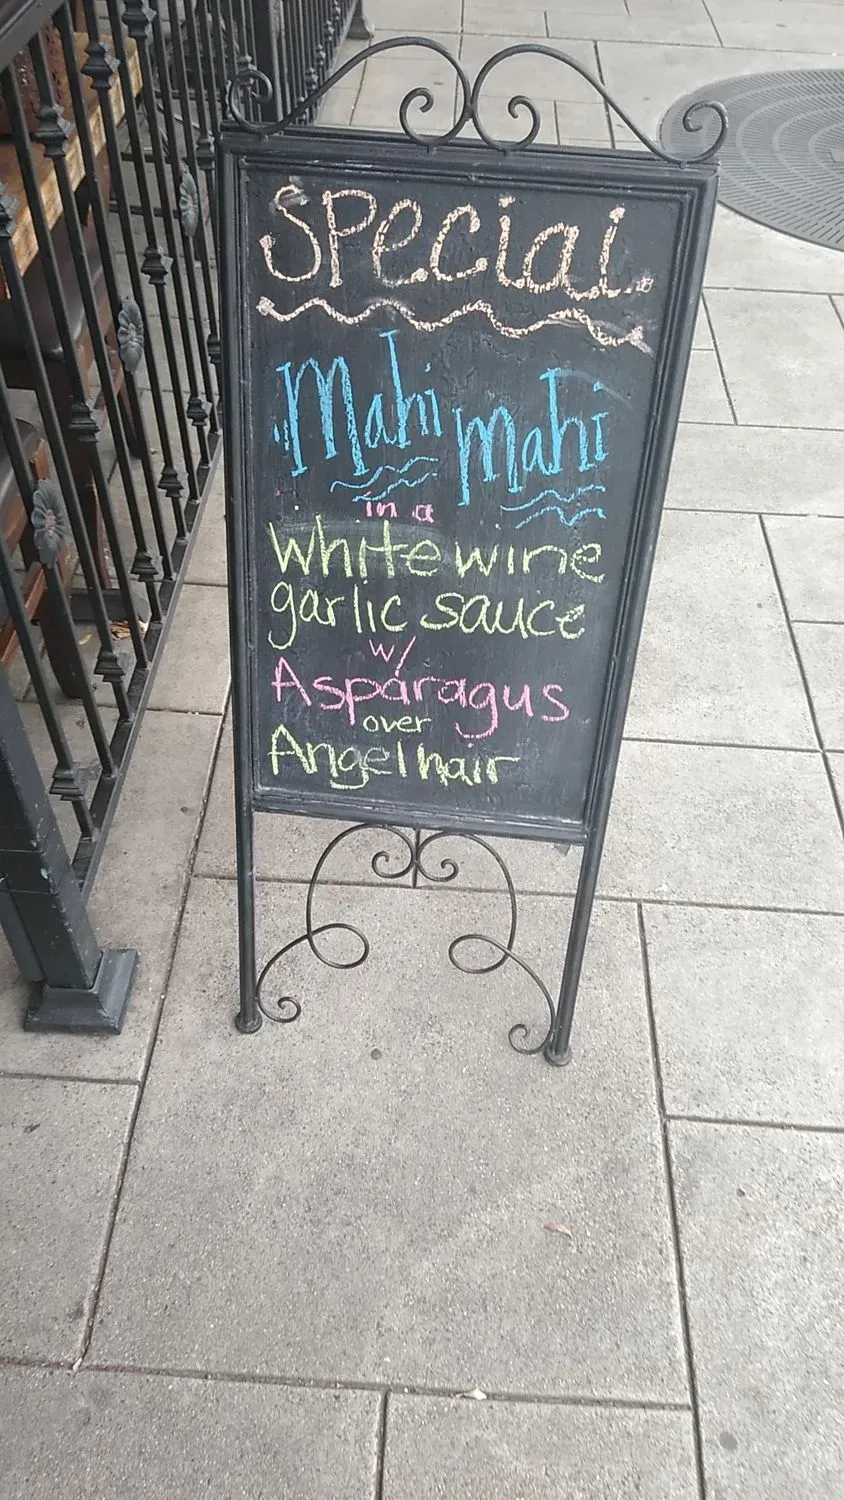 Special
Mahi Mahi
in a
White wine
garlic sauce
w/
Asparagus
over
Angel hair